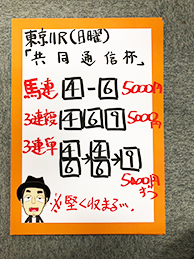 東京11R(日曜)
「共同通信杯」
馬連 4-6 5000円
3連複 4 6 9 5000円
3連単 4/6→4/6→9
5000円ずつ
※堅く収まる…。